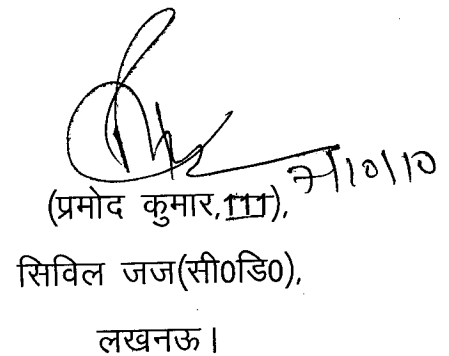 7/10/10
(प्रमोद कुमार,III),
सिविल जज(सी0डि0),
लखनऊ।